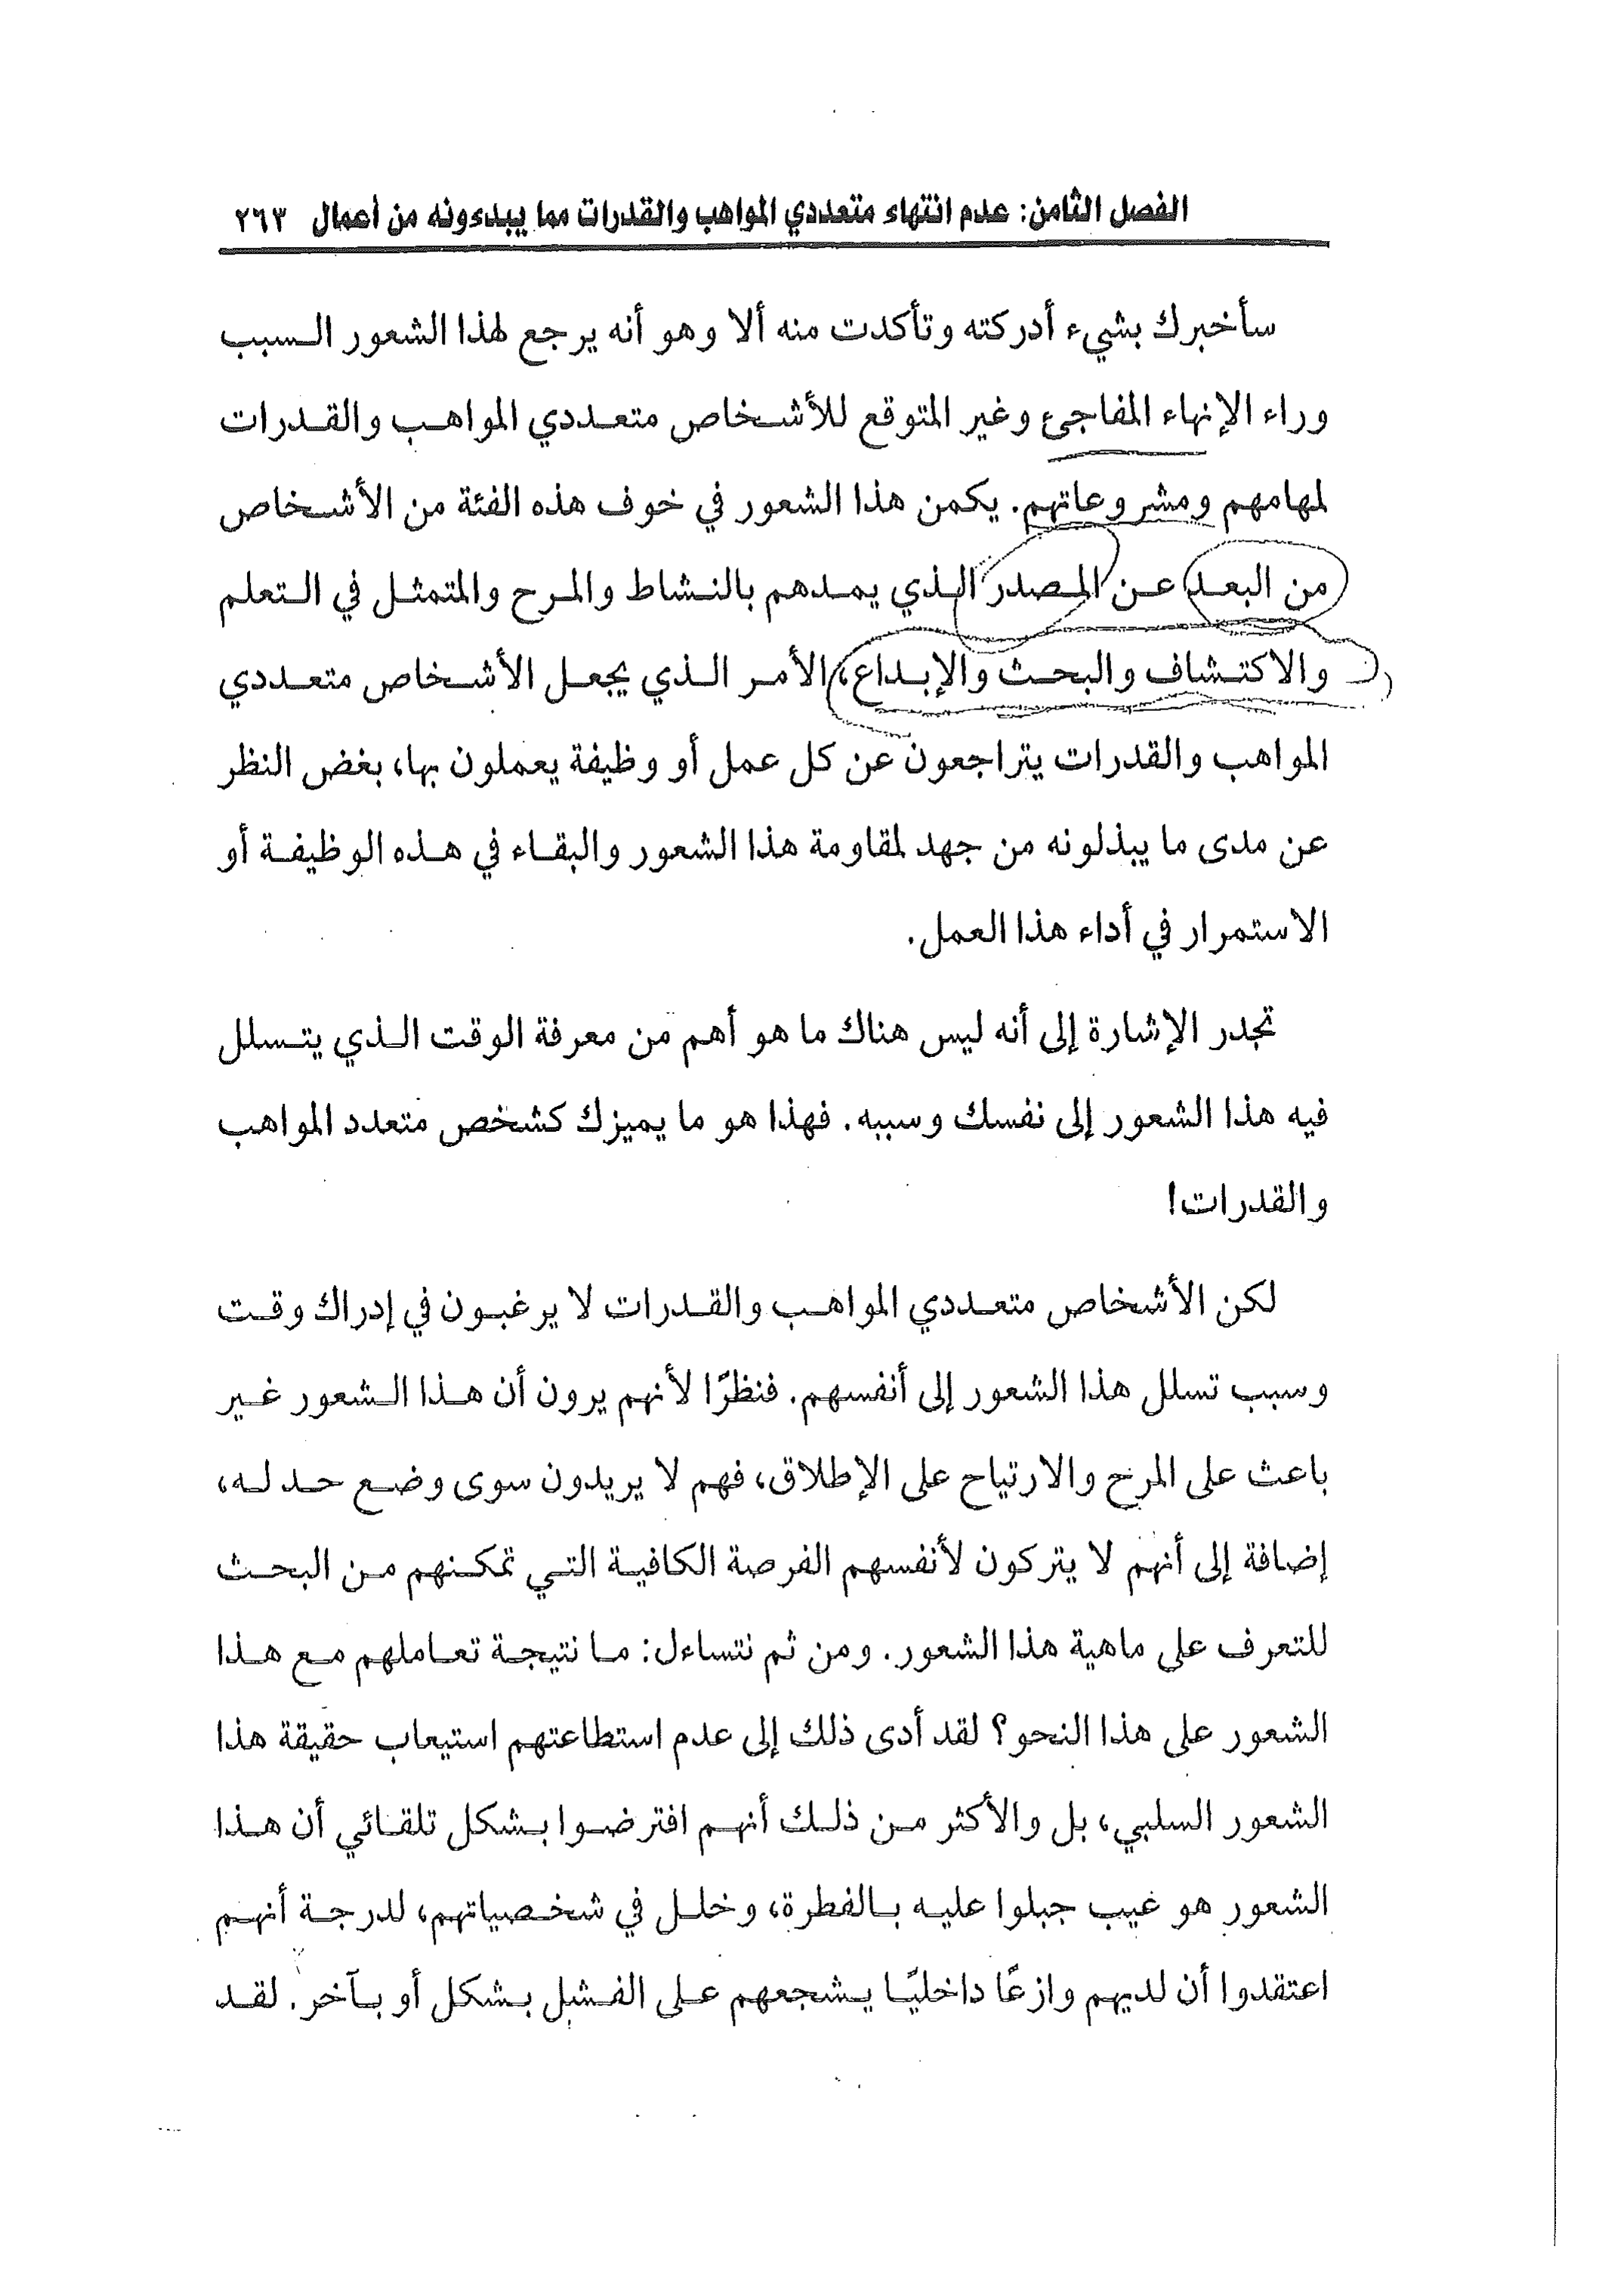 الفصل الثامن: عدم انتهاء متعددي المواهب والقدرات مما يبدءونه من أعمال ٢٦٣
سأخبرك بشيء أدركته وتأكدت منه ألا وهو أنه يرجع لهذا الشعور السبب
وراء الإنهاء المفاجئ وغير المتوقع للأشخاص متعددي المواهب والقدرات
لمهامهم ومشروعاتهم. يكمن هذا الشعور في خوف هذه الفئة من الأشخاص
من البعد عن المصدر الذي يمدهم بالنشاط والمرح والمتمثل في التعلم
والاكتشاف والبحث والإبداع، الأمر الذي يجعل الأشخاص متعددي
المواهب والقدرات يتراجعون عن كل عمل أو وظيفة يعملون بها، بغض النظر
عن مدى ما يبذلونه من جهد لمقاومة هذا الشعور والبقاء في هذه الوظيفة أو
الاستمرار في أداء هذا العمل.
تجدر الإشارة إلى أنه ليس هناك ما هو أهم من معرفة الوقت الذي يتسلل
فيه هذا الشعور إلى نفسك وسببه. فهذا هو ما يميزك كشخص متعدد المواهب
والقدرات!
لكن الأشخاص متعددي المواهب والقدرات لا يرغبون في إدراك وقت
وسبب تسلل هذا الشعور إلى أنفسهم. فنظرًا لأنهم يرون أن هذا الشعور غير
باعث على المرح والارتياح على الإطلاق، فهم لا يريدون سوى وضع حد له،
إضافة إلى أنهم لا يتركون لأنفسهم الفرصة الكافية التي تمكنهم من البحث
للتعرف على ماهية هذا الشعور. ومن ثم نتساءل: ما نتيجة تعاملهم مع هذا
الشعور على هذا النحو؟ لقد أدى ذلك إلى عدم استطاعتهم استيعاب حقيقة هذا
الشعور السلبي، بل والأكثر من ذلك أنهم افترضوا بشكل تلقائي أن هذا
الشعور هو عيب جبلوا عليه بالفطرة، وخلل في شخصياتهم، لدرجة أنهم
اعتقدوا أن لديهم وازعًا داخليًا يشجعهم على الفشل بشكل أو بآخر. لقد